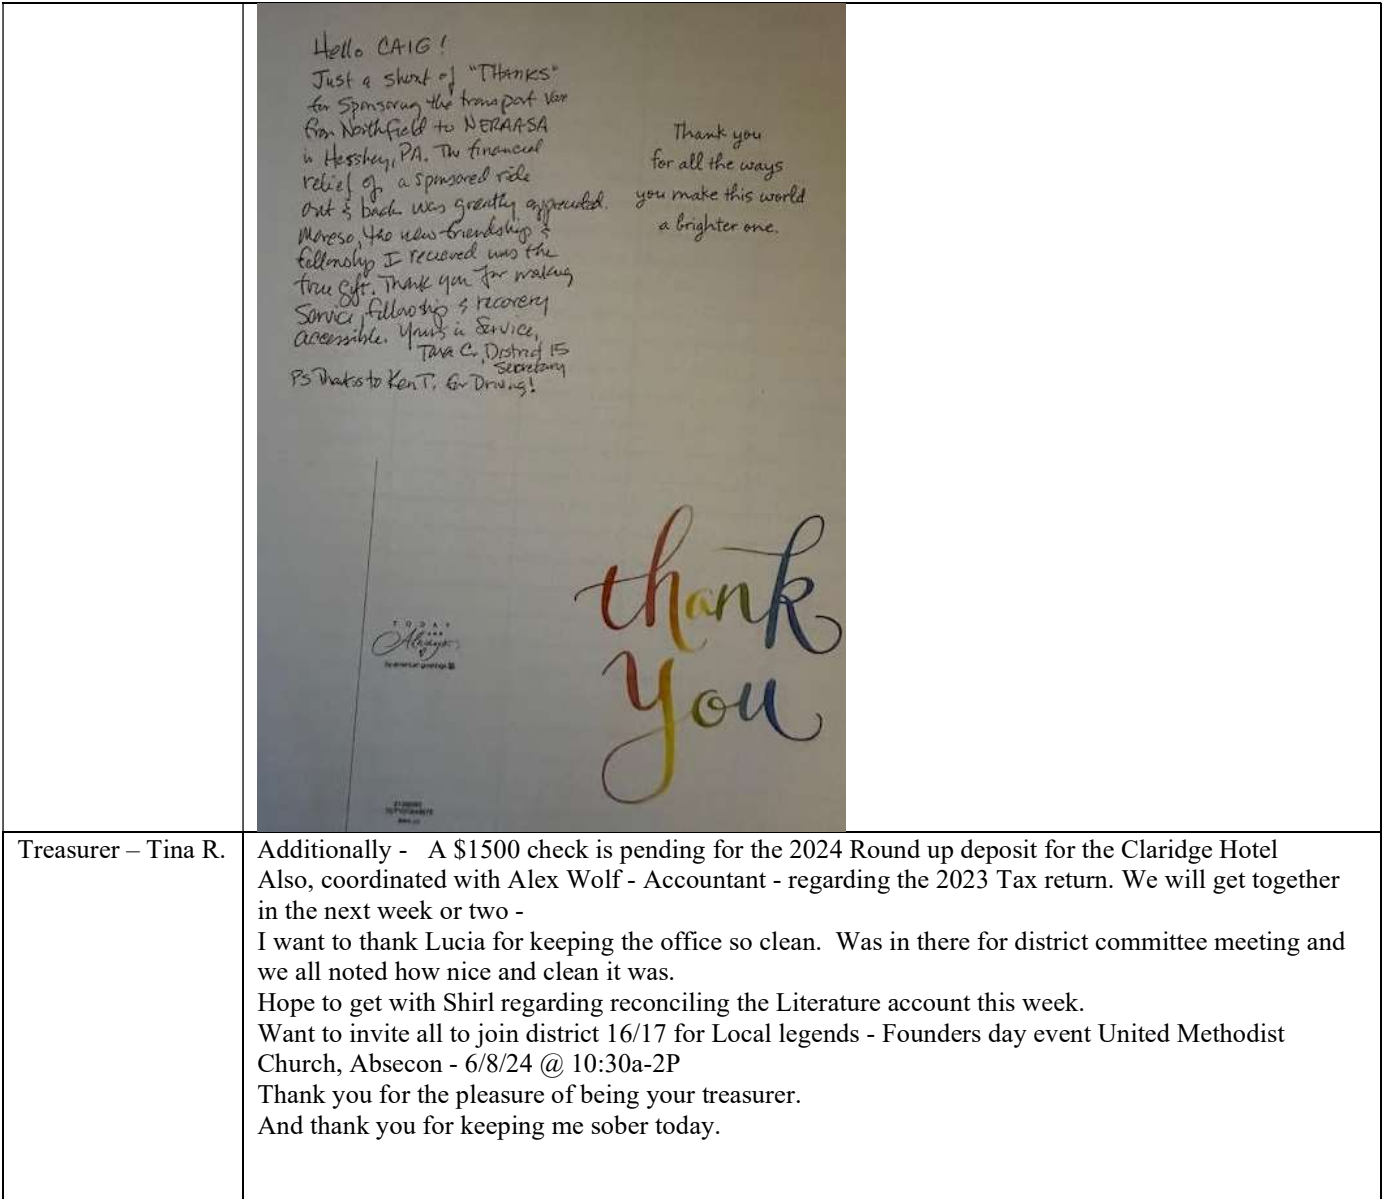 Hello CAIG!
Just a short of "THANKS"
for sponsoring the transport van
from Northfield to NERAASA
in Hershey, PA. The financial
relief of a sponsored ride
out & back was greatly appreciated.
Moreso, the new friendship &
fellowship I recieved was the
true gift. Thank you for making
Service, fellowship & recovery
accessible. Yours in Service,
Tara C. District 15
Secretary
PS Thanks to Ken T. for Driving!
Thank you
for all the ways
you make this world
a brighter one.
thank
you
TODAY
AND
Always
by american greetings
Treasurer – Tina R.
Additionally - A $1500 check is pending for the 2024 Round up deposit for the Claridge Hotel
Also, coordinated with Alex Wolf - Accountant - regarding the 2023 Tax return. We will get together
in the next week or two -
I want to thank Lucia for keeping the office so clean. Was in there for district committee meeting and
we all noted how nice and clean it was.
Hope to get with Shirl regarding reconciling the Literature account this week.
Want to invite all to join district 16/17 for Local legends - Founders day event United Methodist
Church, Absecon - 6/8/24 @ 10:30a-2P
Thank you for the pleasure of being your treasurer.
And thank you for keeping me sober today.